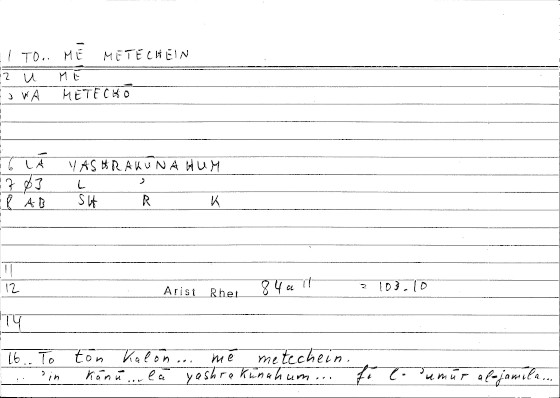 1 TO.. MĒ METECHEIN
2 U MĒ
3 VA METECHŌ
6 LĀ YASHRAKŪNAHUM
7 Ø3 L ʾ
8 AB SH R K
11
12 Arist Rhet 84a11 = 103.10
14
16.. To tōn kalōn... mē metechein.
.. ʾin kānū...lā yashrakūnahum... fī l-ʾumūr al-jamīla...